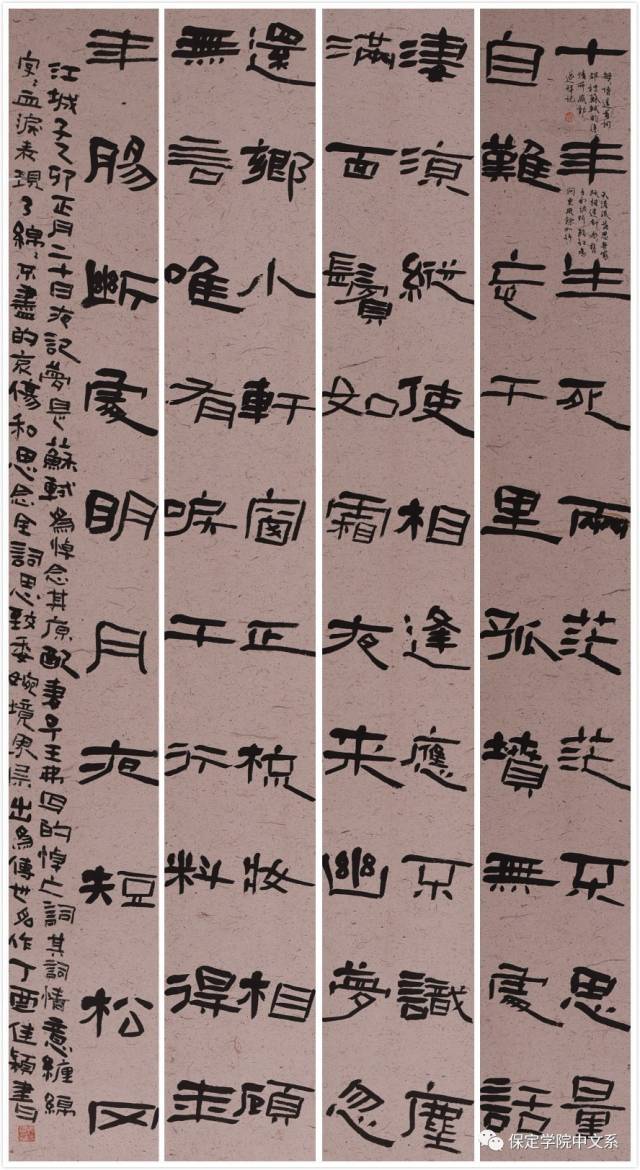 十年生死兩茫茫不思量
自難忘千里孤墳無處話
淒涼縱使相逢應不識塵
滿面鬢如霜夜来幽夢忽
還鄉小軒窗正梳妝相顧
無言唯有淚千行料得年
年腸斷處明月夜短松冈
江城子乙卯正月二十日夜記夢是蘇軾為悼念其原配妻子王弗写的悼亡詞其詞情意纏綿
字字血淚表現了綿綿不盡的哀傷和思念全詞思致委婉境界层出為傳世名作丁酉佳穎書
保定学院中文系